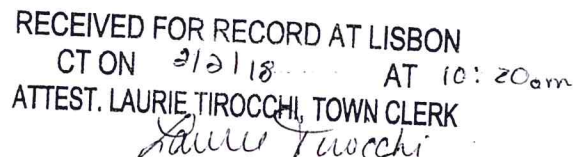 RECEIVED FOR RECORD AT LISBON
CT ON 2/2/18 AT 10:20am
ATTEST. LAURIE TIROCCHI, TOWN CLERK
Laurie Tirocchi